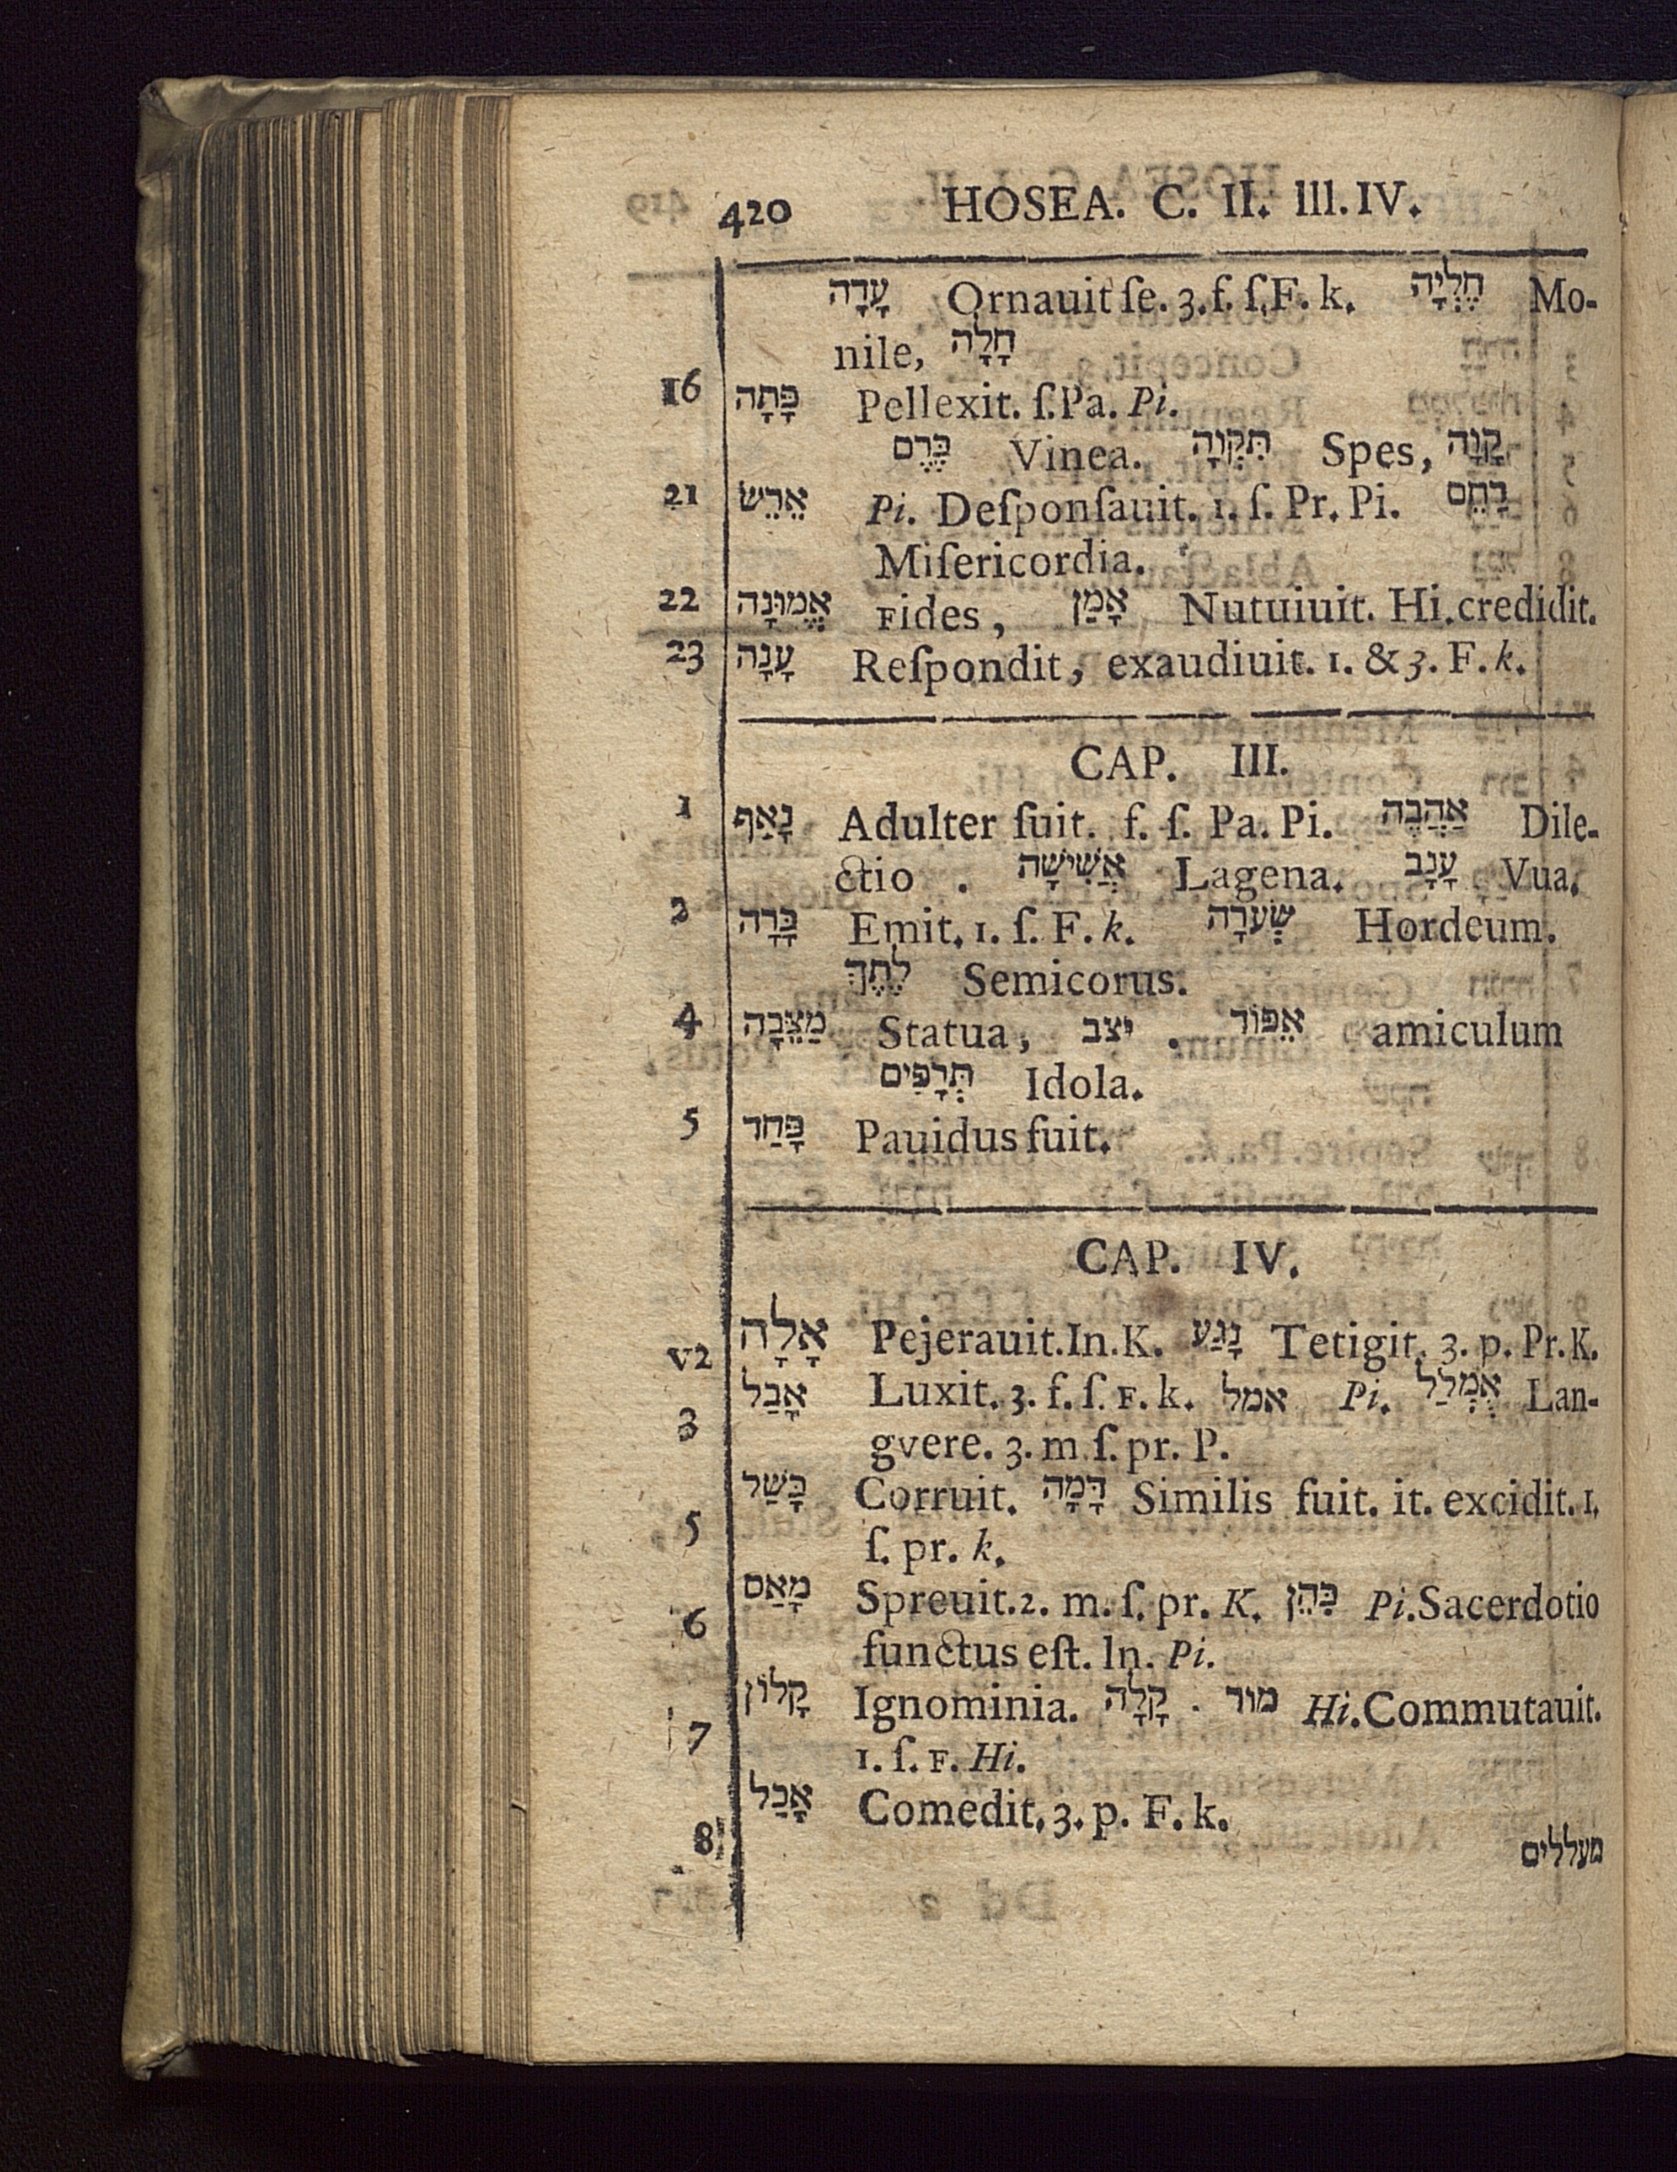 420 HOSEA. C. II. III. IV.
עָדָה Ornauit ſe. 3. f. ſ. F. k. חֶלְיָה Mo-
nile, חָלָה
16 פָּתָה Pellexit. ſ. Pa. Pi.
כֶּרֶם Vinea. תִּקְוָה Spes, קָוָה
21 אֵרֵשׂ Pi. Deſponſauit. 1. ſ. Pr. Pi. רָחֵם
Miſericordia.
22 אֱמוּנָה Fides, אָמַן Nutuiuit. Hi. credidit.
23 עָנָה Reſpondit, exaudiuit. 1. & 3. F. k.
CAP. III.
1 נָאַף Adulter fuit. f. ſ. Pa. Pi. אַהֲבָה Dile-
ctio . אֲשִׁישָׁה Lagena. עָנָב Vua.
2 כָּרָה Emit. 1. ſ. F. k. שְׂעֹרָה Hordeum.
לֶתֶךְ Semicorus.
4 מַצֵּבָה Statua, יצב . אֵפוֹד amiculum
תְּרָפִים Idola.
5 פָּחַד Pauidus fuit.
CAP. IV.
v2 אָלָה Pejerauit. In. K. נָגַע Tetigit. 3. p. Pr. K.
3 אָבַל Luxit. 3. f. ſ. F. k. אמל Pi. אֻמְלַל Lan-
gvere. 3. m ſ. pr. P.
5 כָּשַׁל Corruit. דָּמָה Similis fuit. it. excidit. 1.
ſ. pr. k.
6 מָאַס Spreuit. 2. m. ſ. pr. K. כִּהֵן Pi. Sacerdotio
functus eſt. In. Pi.
7 קָלוֹן Ignominia. קָלָה . מור Hi. Commutauit.
1. ſ. F. Hi.
8 אָכַל Comedit. 3. p. F. k.
מעללים